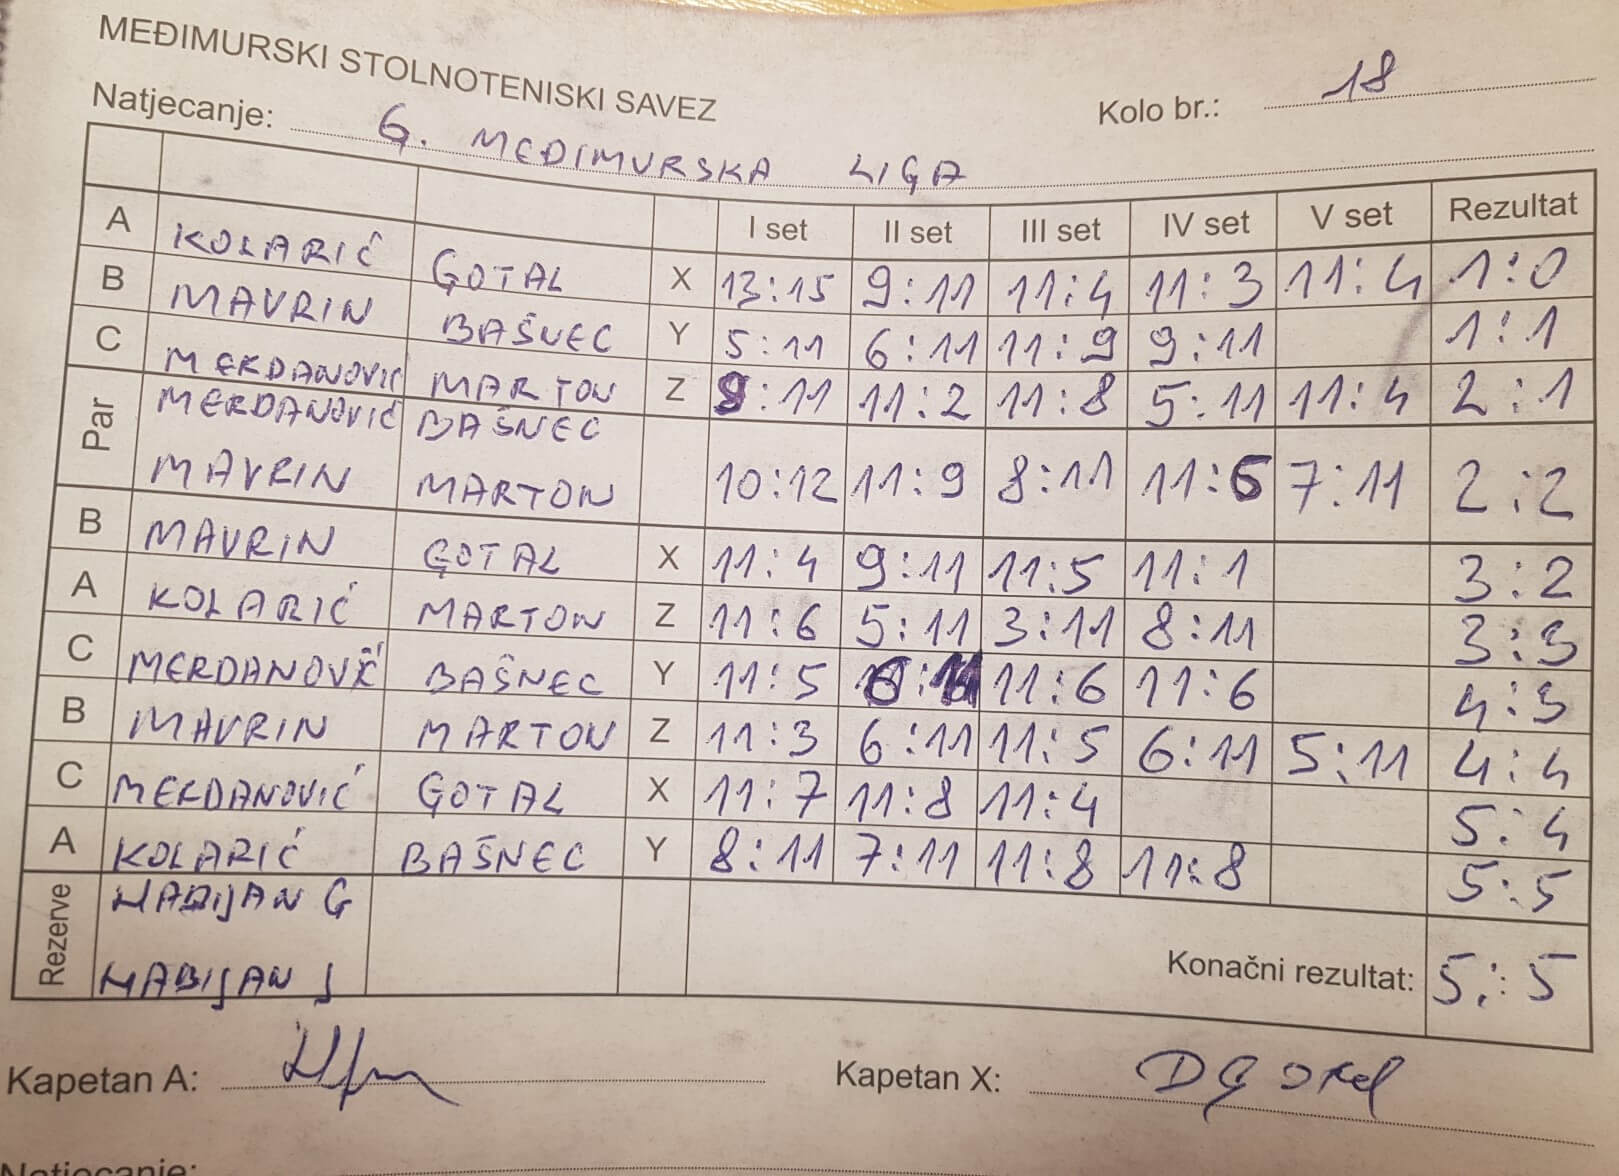 MEĐIMURSKI STOLNOTENISKI SAVEZ
Kolo br.: 18
Natjecanje: G. MEĐIMURSKA LIGA
I set II set III set IV set V set Rezultat
A KOLARIĆ GOTAL X 13:15 9:11 11:4 11:3 11:4 1:0
B MAVRIN BAŠNEC Y 5:11 6:11 11:9 9:11 1:1
C MERDANOVIĆ MARTON Z 9:11 11:2 11:8 5:11 11:4 2:1
Par MERDANOVIĆ BAŠNEC
MAVRIN MARTON 10:12 11:9 8:11 11:6 7:11 2:2
B MAVRIN GOTAL X 11:4 9:11 11:5 11:1 3:2
A KOLARIĆ MARTON Z 11:6 5:11 3:11 8:11 3:3
C MERDANOVIĆ BAŠNEC Y 11:5 6:11 11:6 11:6 4:3
B MAVRIN MARTON Z 11:3 6:11 11:5 6:11 5:11 4:4
C MERDANOVIĆ GOTAL X 11:7 11:8 11:4 5:4
A KOLARIĆ BAŠNEC Y 8:11 7:11 11:8 11:8 5:5
Rezerve HABIJAN G
HABIJAN J
Konačni rezultat: 5:5
Kapetan A:
Kapetan X:
Natjecanje: